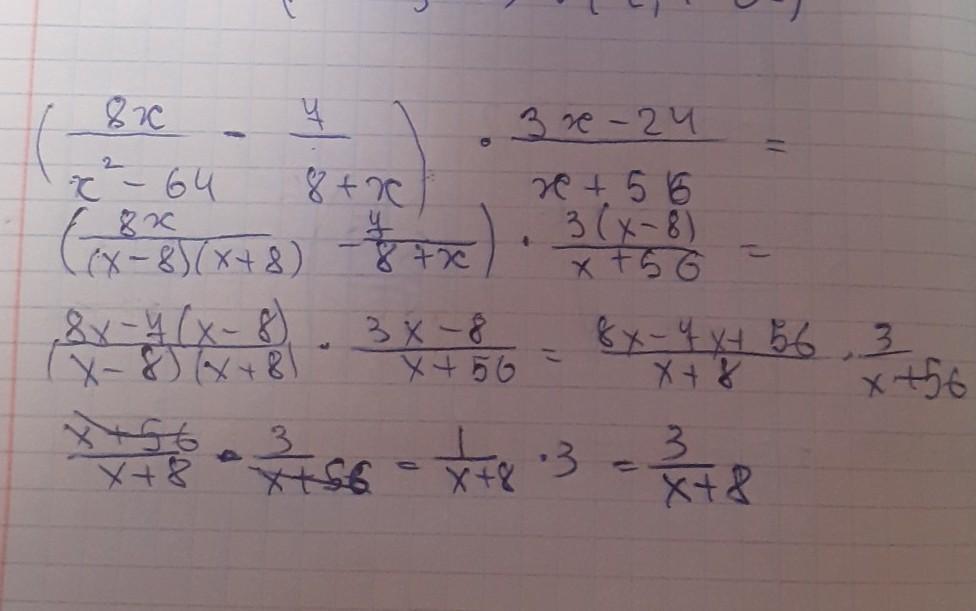 (8x/(x² - 64) - 7/(8 + x)) · (3x - 24)/(x + 56) =
(8x/((x - 8)(x + 8)) - 7/(8 + x)) · 3(x - 8)/(x + 56) =
(8x - 7(x - 8))/((x - 8)(x + 8)) · (3x - 8)/(x + 56) = (8x - 7x + 56)/(x + 8) · 3/(x + 56)
(x + 56)/(x + 8) · 3/(x + 56) = 1/(x + 8) · 3 = 3/(x + 8)